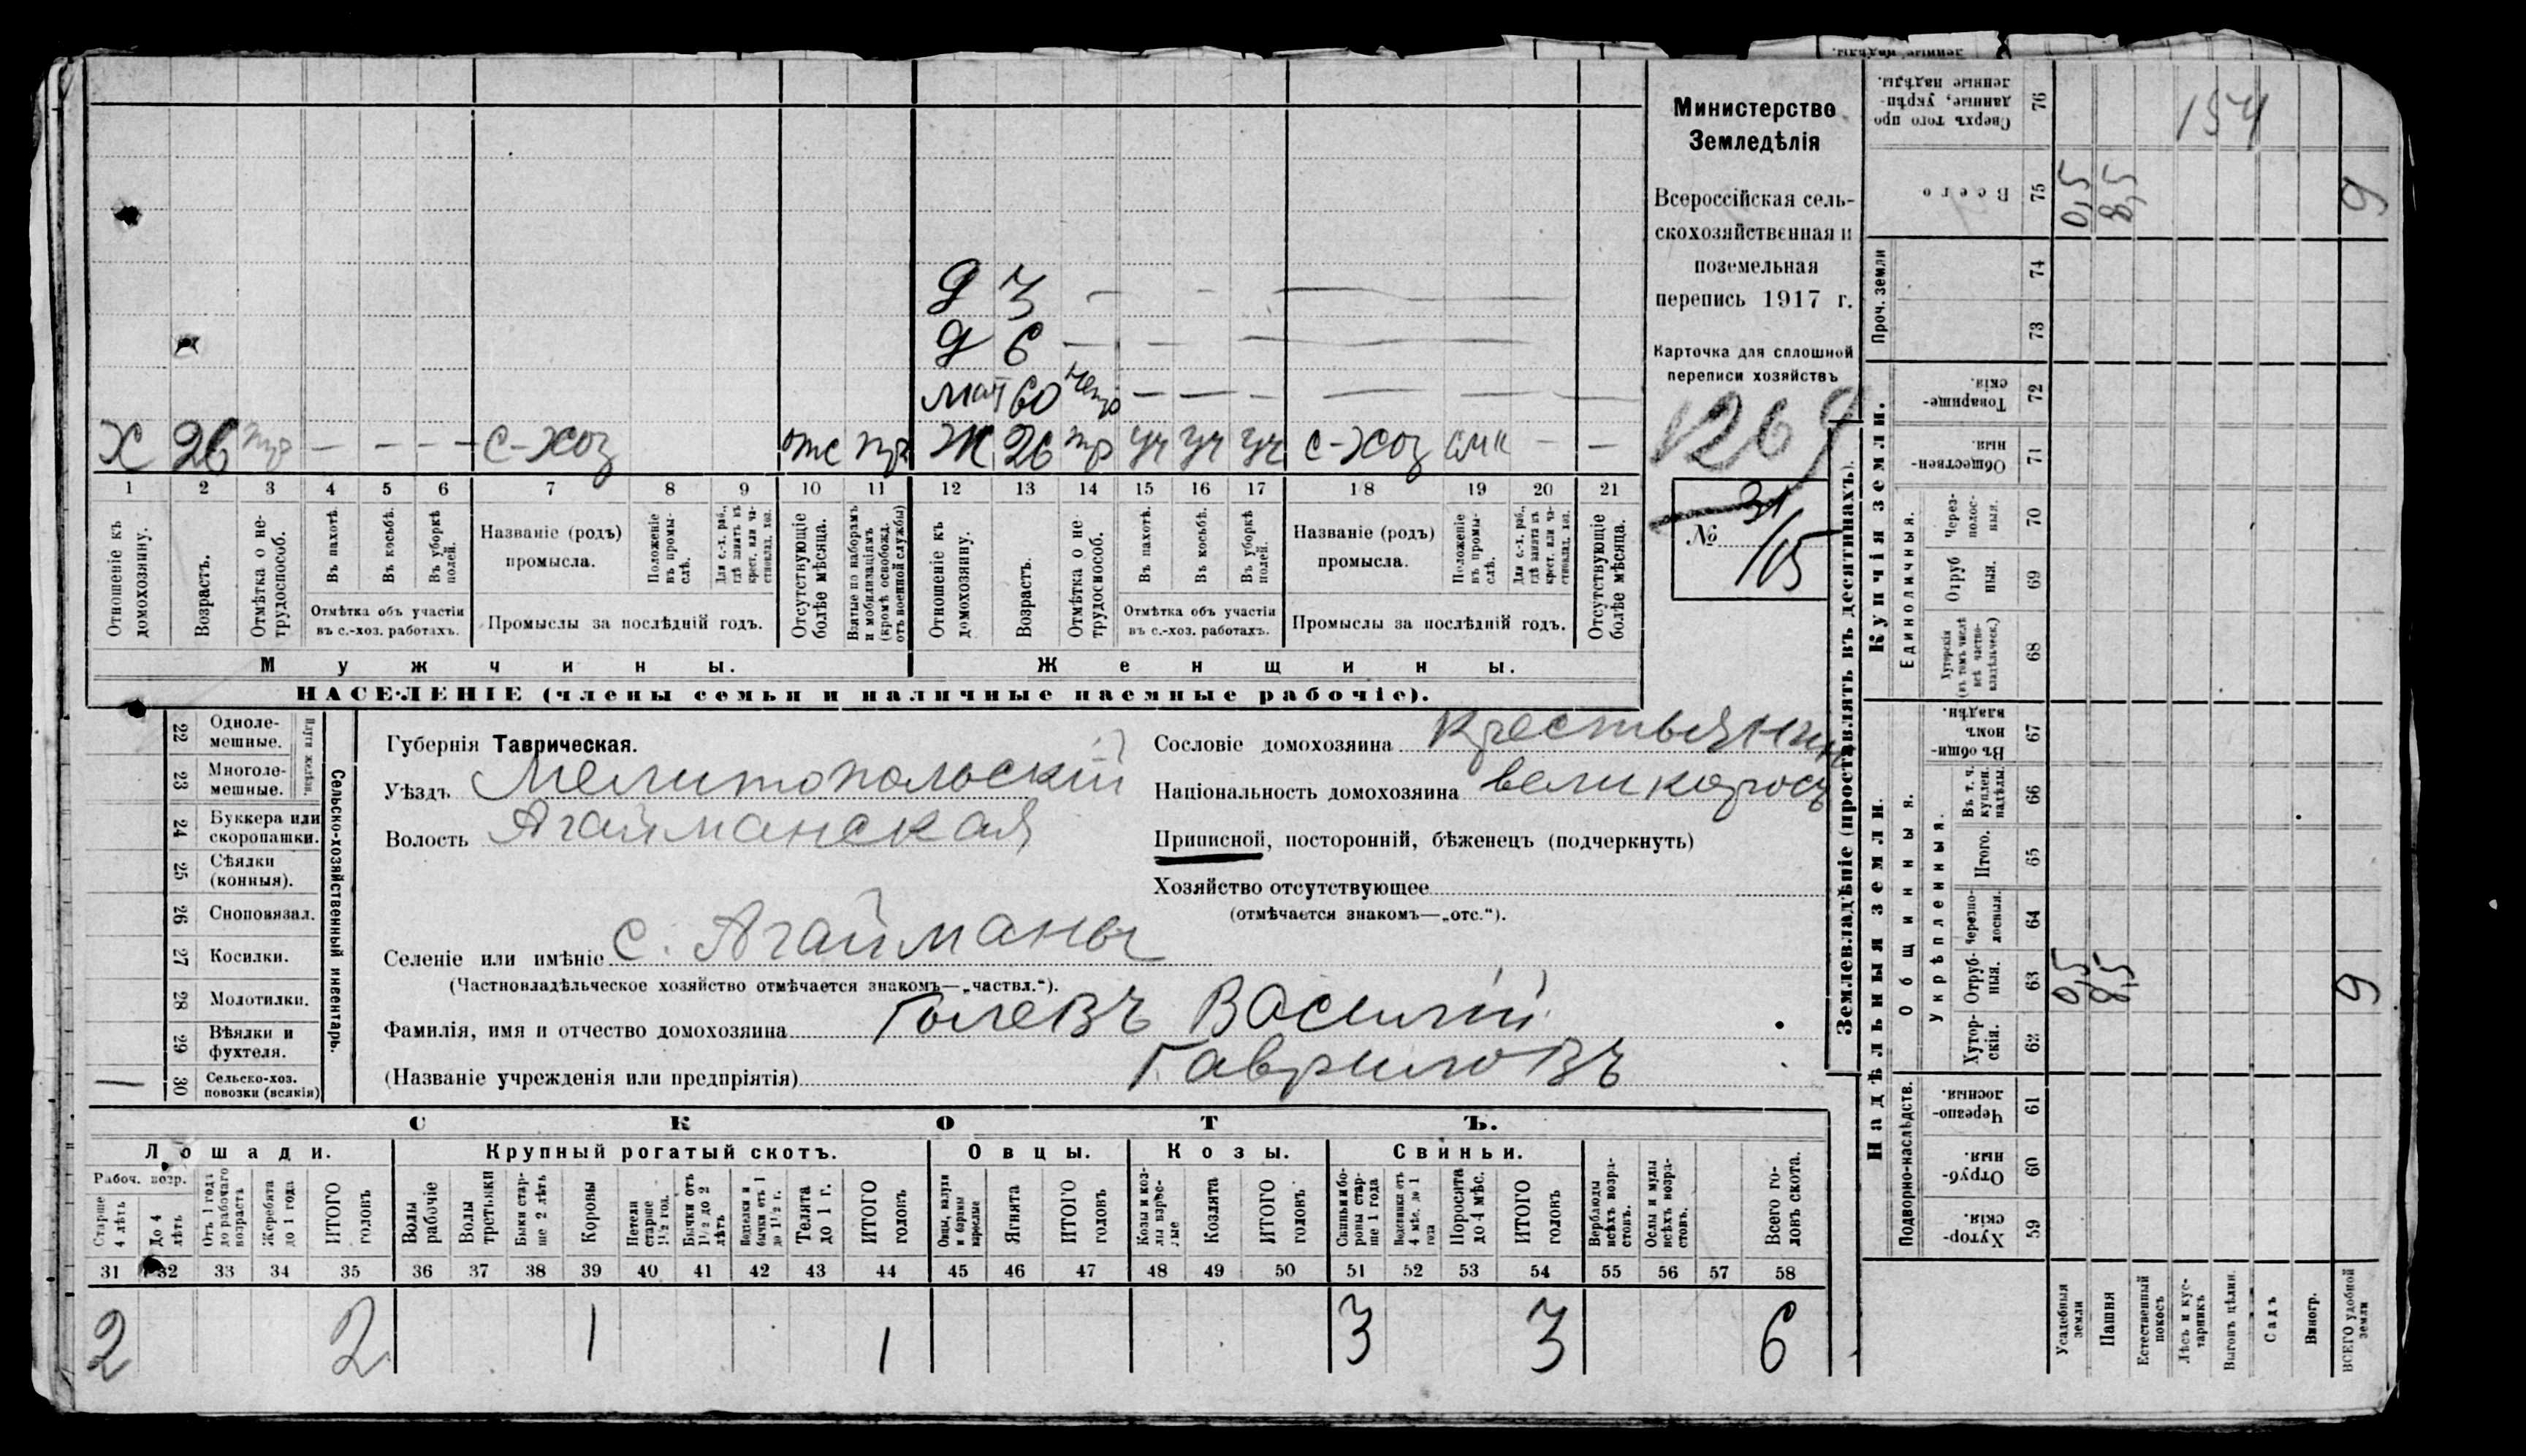 Д 3 — — — — —
Д 6 — — — — —
мат 60 нетр — — — — — —
Х 26 тр — — — — с-хоз отс пр Ж 26 тр уч уч уч с-хоз — —
1 2 3 4 5 6 7 8 9 10 11 12 13 14 15 16 17 18 19 20 21
Отношеніе къ домохозяину.
Возрастъ.
Отмѣтка о не-трудоспособ.
Въ пахотѣ.
Въ косьбѣ.
Въ уборкѣ полей.
Отмѣтка объ участіи
въ с.-хоз. работахъ.
Названіе (родъ)
промысла.
Положеніе въ промы-слѣ.
Для с.-х. раб., гдѣ занятъ въ крест. или ча-стновлад. хоз.
Промыслы за послѣдній годъ.
Отсутствующіе болѣе мѣсяца.
Взятые по наборамъ и мобилизаціямъ (кромѣ освобожд. отъ военной службы)
Отношеніе къ домохозяину.
Возрастъ.
Отмѣтка о не трудоспособ.
Въ пахотѣ.
Въ косьбѣ.
Въ уборкѣ полей.
Отмѣтка объ участіи
въ с.-хоз. работахъ.
Названіе (родъ)
промысла.
Положеніе въ промы-слѣ.
Для с.-х. раб., гдѣ занятъ въ крест. или ча-стновлад. хоз.
Промыслы за послѣдній годъ.
Отсутствующіе болѣе мѣсяца.
Мужчины.
Женщины.
НАСЕЛЕНІЕ (члены семьи и наличные наемные рабочіе).
Министерство
Земледѣлія
Всероссійская сель-
скохозяйственная и
поземельная
перепись 1917 г.
Карточка для сплошной
переписи хозяйствъ
1269
31
№
/15
22 Одноле-
мешные.
23 Многоле-
мешные.
Плуги желѣзн.
24 Буккера или
скоропашки.
25 Сѣялки
(конныя).
26 Сноповязал.
27 Косилки.
28 Молотилки.
29 Вѣялки и
фухтеля.
— 30 Сельско-хоз.
повозки (всякія)
Сельско-хозяйственный инвентарь.
Губернія Таврическая.
Уѣздъ Мелитопольскій
Волость Агайманская
Селеніе или имѣніе с. Агайманы
(Частновладѣльческое хозяйство отмѣчается знакомъ—„частвл.“).
Фамилія, имя и отчество домохозяина Голевъ Василій
(Названіе учрежденія или предпріятія) Гавриловъ
Сословіе домохозяина крестьянинъ
Національность домохозяина великоросъ
Приписной, посторонній, бѣженецъ (подчеркнуть)
Хозяйство отсутствующее
(отмѣчается знакомъ—„отс.“).
СКОТЪ.
Лошади. Крупный рогатый скотъ. Овцы. Козы. Свиньи.
Рабоч. возр.
Старше 4 лѣтъ
До 4 лѣтъ
Отъ 1 года до рабочаго возраста
Жеребята до 1 года
ИТОГО головъ
Волы рабочіе
Волы третьяки
Быки стар-ше 2 лѣтъ
Коровы
Нетели старше 1½ год.
Бычки отъ 1½ до 2 лѣтъ
Телки и бычки отъ 1 до 1½ г.
Телята до 1 г.
ИТОГО головъ
Овцы, валухи и бараны взрослые
Ягнята
ИТОГО головъ
Козы и коз-лы взрос-лые
Козлята
ИТОГО головъ
Свиньи и бо-ровы стар-ше 1 года
Подсвинки отъ 4 мѣс. до 1 года
Поросята до 4 мѣс.
ИТОГО головъ
Верблюды всѣхъ возра-стовъ.
Ослы и мулы всѣхъ возра-стовъ.
Всего го-ловъ скота.
31 32 33 34 35 36 37 38 39 40 41 42 43 44 45 46 47 48 49 50 51 52 53 54 55 56 57 58
2 2 1 1 3 3 6
Землевладѣніе (проставлять въ десятинахъ).
Надѣльныя земли.
Купчія земли.
Проч. земли
Подворно-наслѣдств.
Общинныя.
Укрѣпленныя.
Единоличныя.
Сверхъ того про данные, укрѣп-ленные надѣлы. 76
154
Всего 75 0,5 8,5 9
74
73
Товарище-скія. 72
Обществен-ныя. 71
Через-полос-ныя. 70
Отруб ныя. 69
Хуторскія (въ томъ числѣ всѣ частно-владѣльческ.) 68
Въ общин-номъ владѣн. 67
Въ т. ч. куплен. надѣлы. 66
Итого. 65
Черезпо-лосныя. 64
Отруб-ныя. 63 0,5 8,5 9
Хутор-скія. 62
Черезпо-лосныя. 61
Отруб-ныя. 60
Хутор-скія. 59
Усадебныя земли
Пашня
Естественный покосъ
Лѣсъ и кус-тарникъ
Выгонъ цѣлин.
Садъ
Виногр.
ВСЕГО удобной земли